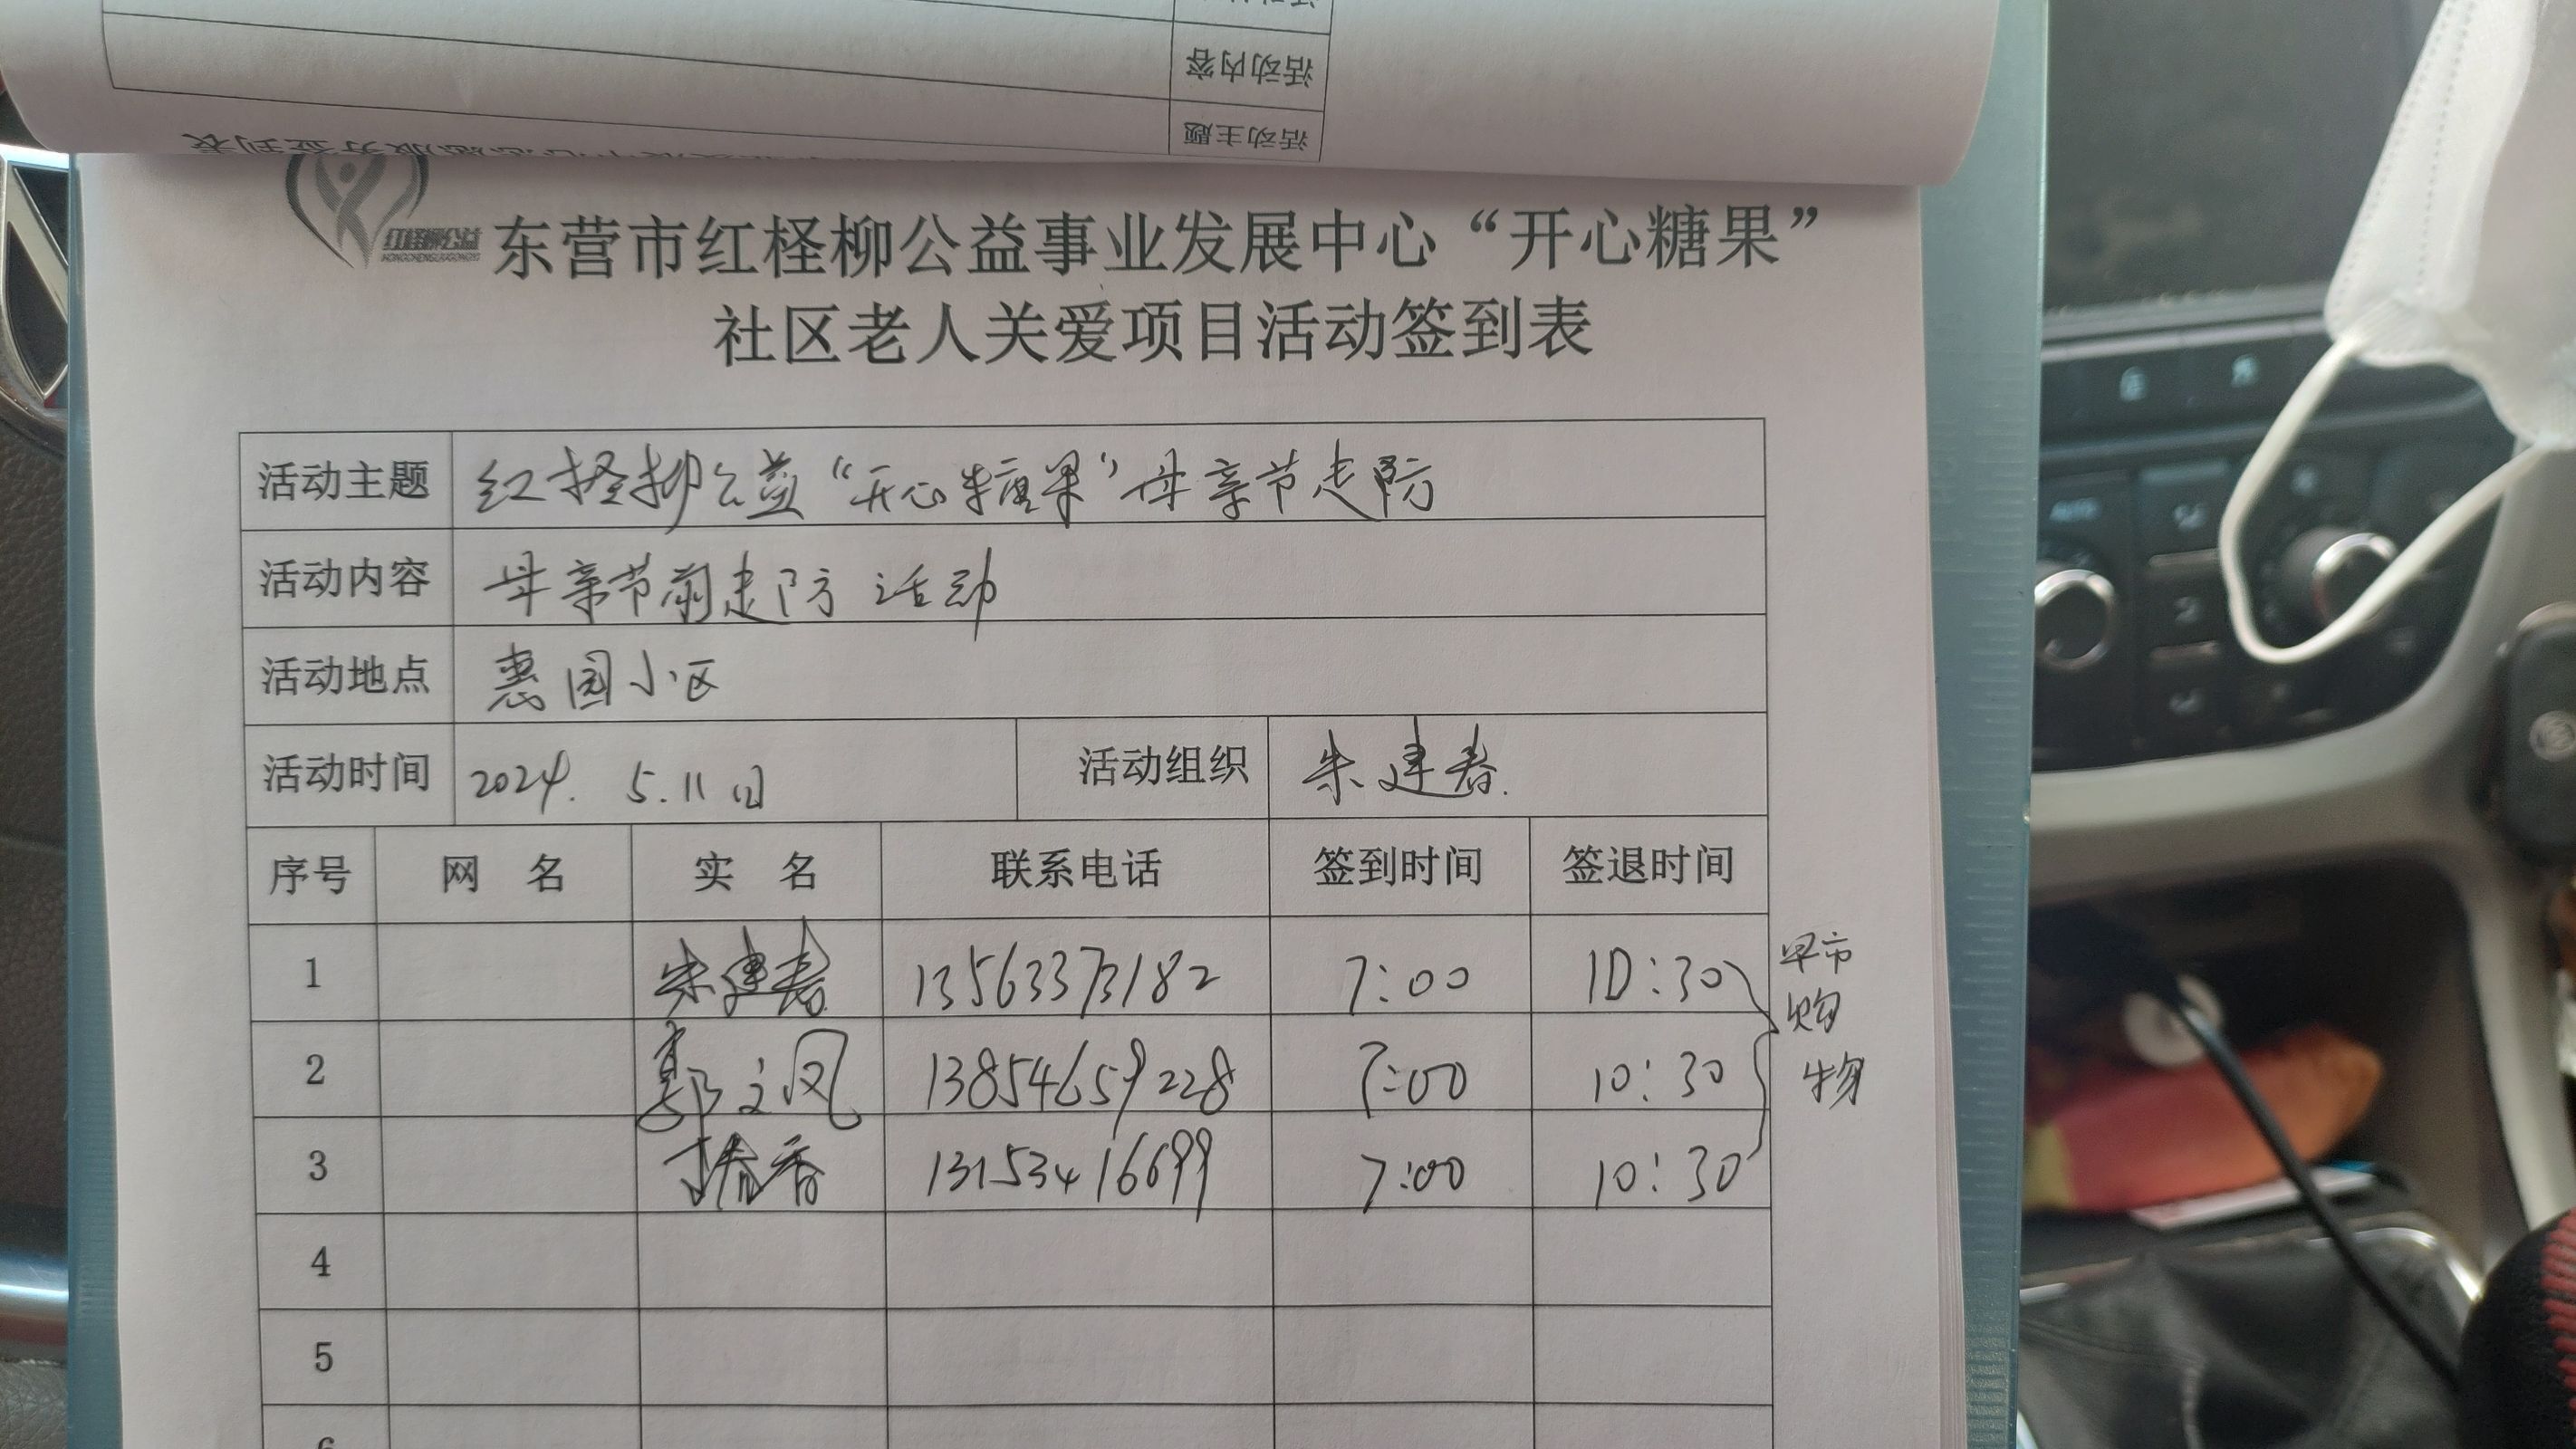 活动内容
活动主题
红柽柳公益
HONGCHENGLIUGONGYI
东营市红柽柳公益事业发展中心“开心糖果”
社区老人关爱项目活动签到表
活动主题 红柽柳公益“开心糖果”母亲节走防
活动内容 母亲节前走防活动
活动地点 惠园小区
活动时间 2024. 5.11日 活动组织 朱建春.
序号 网 名 实 名 联系电话 签到时间 签退时间
1 朱建春 13563373182 7:00 10:30
2 郭立凤 13854659228 7:00 10:30
3 13153416699 7:00 10:30
早市
购
物
4
5
6